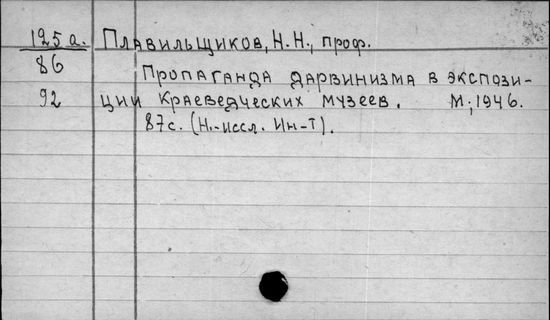 125а. Плавильщиков, Н.Н., проф.
86 Пропаганда дарвинизма в экспози-
92 ции Краеведческих музеев. М., 1946.
87с. (Н.-иссл. Ин-т).